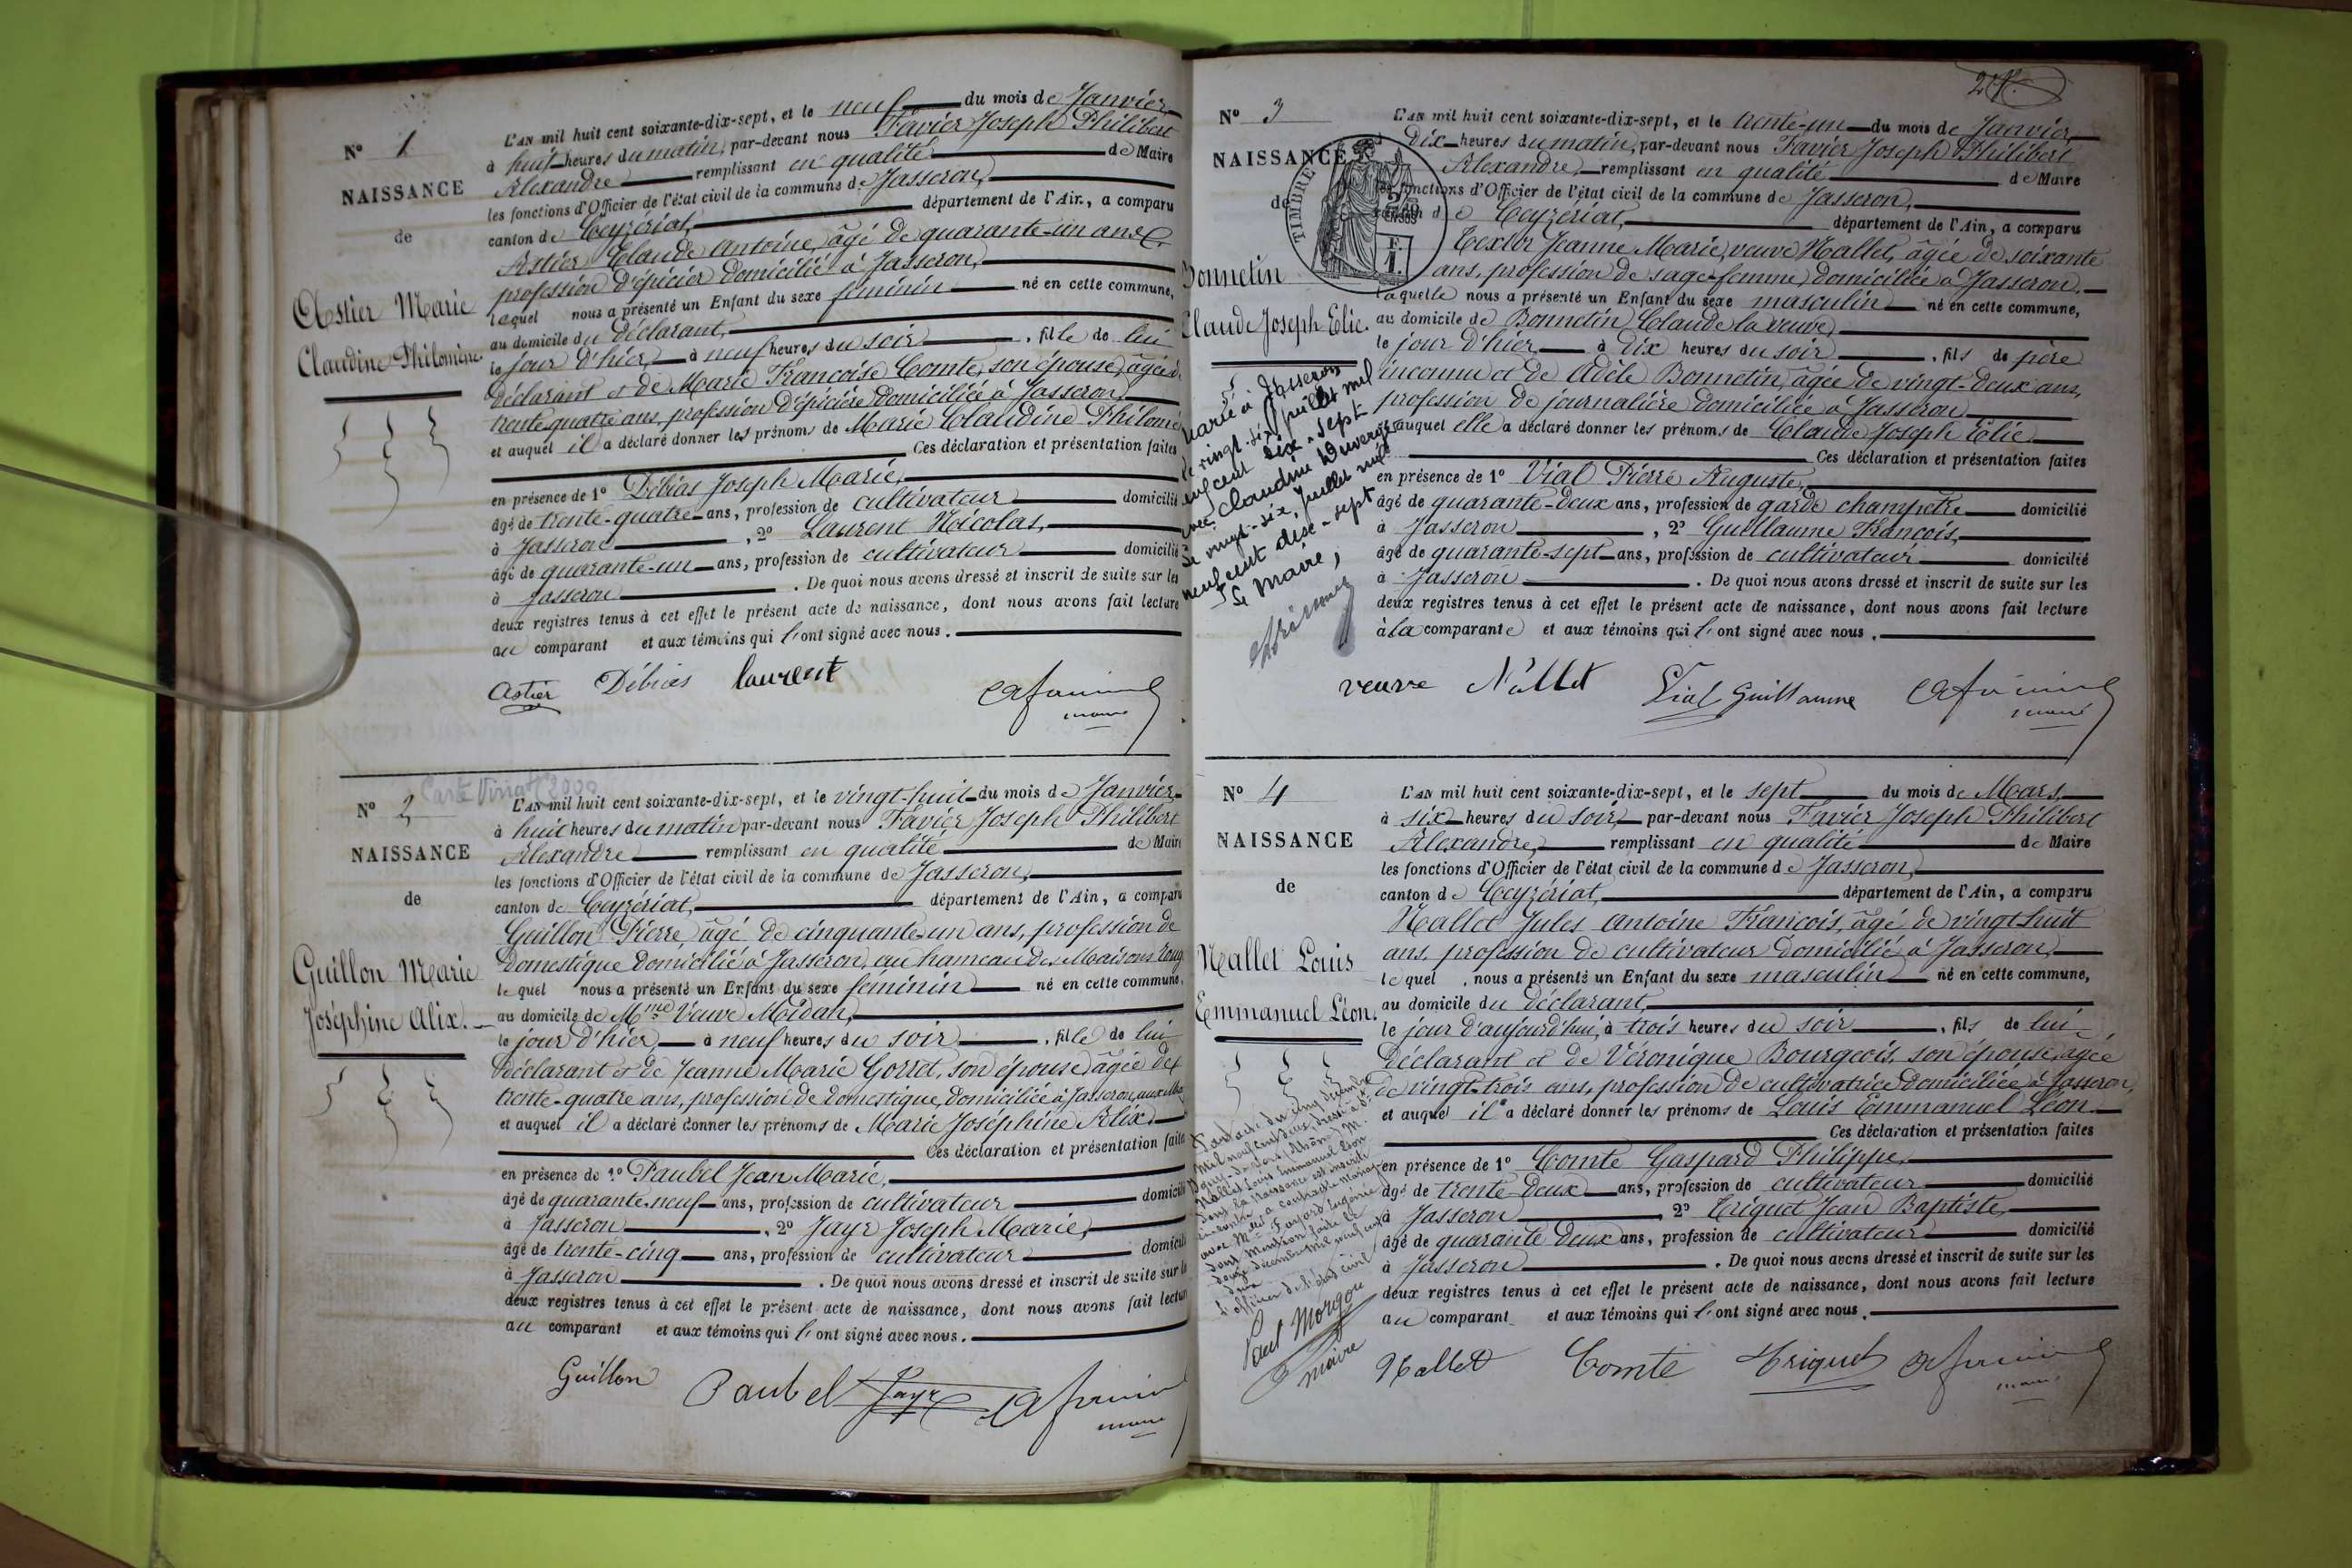 N° 1
NAISSANCE
de
Astier Marie
Claudine Philomène.
L'AN mil huit cent soixante-dix-sept, et le neuf du mois de Janvier
à huit heures du matin, par-devant nous Favier Joseph Philibert
Alexandre remplissant en qualité de Maire
les fonctions d'Officier de l'état civil de la commune de Jasseron,
canton de Ceyzériat, département de l'Ain, a comparu
Astier Claude Antoine, âgé de quarante-un ans,
profession d'épicier domicilié à Jasseron,
lequel nous a présenté un Enfant du sexe féminin né en cette commune,
au domicile du déclarant,
le jour d'hier, à neuf heures du soir, fille de lui
déclarant et de Marie Françoise Comte, son épouse, âgée de
trente-quatre ans, profession d'épicière domiciliée à Jasseron,
et auquel il a déclaré donner les prénoms de Marie Claudine Philomè
Ces déclaration et présentation faites
en présence de 1° Débias Joseph Marie,
âgé de trente-quatre ans, profession de cultivateur domicilié
à Jasseron, 2° Laurent Nicolas,
âgé de quarante-un ans, profession de cultivateur domicilié
à Jasseron. De quoi nous avons dressé et inscrit de suite sur les
deux registres tenus à cet effet le présent acte de naissance, dont nous avons fait lecture
au comparant et aux témoins qui l'ont signé avec nous.
Astier Débias laurent
maire
Carte
2000
N° 2
NAISSANCE
de
Guillon Marie
Joséphine Alix.
L'AN mil huit cent soixante-dix-sept, et le vingt-huit du mois de Janvier
à huit heures du matin par-devant nous Favier Joseph Philibert
Alexandre remplissant en qualité de Maire
les fonctions d'Officier de l'état civil de la commune de Jasseron,
canton de Ceyzériat, département de l'Ain, a comparu
Guillon Pierre, âgé de cinquante-un ans, profession de
domestique domicilié à Jasseron, au hameau des Maisons Roug
lequel nous a présenté un Enfant du sexe féminin né en cette commune,
au domicile de Mme Veuve Midan,
le jour d'hier, à neuf heures du soir, fille de lui
déclarant et de Jeanne Marie Gorret, son épouse âgée de
trente-quatre ans, profession de domestique, domiciliée à Jasseron, aux
et auquel il a déclaré donner les prénoms de Marie Joséphine Alix.
Ces déclaration et présentation faites
en présence de 1° Paubel Jean Marie,
âgé de quarante-neuf ans, profession de cultivateur domicilié
à Jasseron, 2° Jayr Joseph Marie,
âgé de trente-cinq ans, profession de cultivateur domicilié
à Jasseron. De quoi nous avons dressé et inscrit de suite sur les
deux registres tenus à cet effet le présent acte de naissance, dont nous avons fait lecture
au comparant et aux témoins qui l'ont signé avec nous.
Guillon Paubel Jayr
maire
N° 3
NAISSANCE
de
TIMBRE
Bonnetin
Claude Joseph Elie.
Marié à Jasseron
le vingt-six juillet mil
neuf cent dix-sept
avec Claudine Duverger
Le vingt-six Juillet mil
neuf cent dix-sept
Le Maire,
L'AN mil huit cent soixante-dix-sept, et le trente-un du mois de Janvier
Dix heures du matin, par-devant nous Favier Joseph Philibert
Alexandre, remplissant en qualité de Maire
les fonctions d'Officier de l'état civil de la commune de Jasseron,
canton de Ceyzériat, département de l'Ain, a comparu
Texier Jeanne Marie, veuve Nallet, âgée de soixante
ans, profession de sage-femme, domiciliée à Jasseron,
laquelle nous a présenté un Enfant du sexe masculin né en cette commune,
au domicile de Bonnetin Claude la veuve,
le jour d'hier à dix heures du soir, fils de père
inconnu et de Adèle Bonnetin, âgée de vingt-deux ans,
profession de journalière domiciliée à Jasseron
et auquel elle a déclaré donner les prénoms de Claude Joseph Elie
Ces déclaration et présentation faites
en présence de 1° Vial Pierre Auguste,
âgé de quarante-deux ans, profession de garde champêtre domicilié
à Jasseron, 2° Guillaume François,
âgé de quarante-sept ans, profession de cultivateur domicilié
à Jasseron. De quoi nous avons dressé et inscrit de suite sur les
deux registres tenus à cet effet le présent acte de naissance, dont nous avons fait lecture
à la comparante et aux témoins qui l'ont signé avec nous.
veuve Nallet Vial Guillaume
maire
N° 4
NAISSANCE
de
Nallet Louis
Emmanuel Léon.
L'AN mil huit cent soixante-dix-sept, et le sept du mois de Mars,
à six heures du soir, par-devant nous Favier Joseph Philibert
Alexandre, remplissant en qualité de Maire
les fonctions d'Officier de l'état civil de la commune de Jasseron,
canton de Ceyzériat, département de l'Ain, a comparu
Nallet Jules Antoine François, âgé de vingt-huit
ans, profession de cultivateur domicilié à Jasseron,
lequel nous a présenté un Enfant du sexe masculin né en cette commune,
au domicile du déclarant,
le jour d'aujourd'hui, à trois heures du soir, fils de lui
déclarant et de Véronique Bourgeois, son épouse, âgée
de vingt-trois ans, profession de cultivatrice domiciliée à Jasseron,
et auquel il a déclaré donner les prénoms de Louis Emmanuel Léon
Ces déclaration et présentation faites
en présence de 1° Comte Gaspard Philippe,
âgé de trente-deux ans, profession de cultivateur domicilié
à Jasseron, 2° Triquet Jean Baptiste,
âgé de quarante deux ans, profession de cultivateur domicilié
à Jasseron. De quoi nous avons dressé et inscrit de suite sur les
deux registres tenus à cet effet le présent acte de naissance, dont nous avons fait lecture
au comparant et aux témoins qui l'ont signé avec nous.
Par acte du cinq décembre
mil neuf cent deux, dressé à
(Rhône) M.
Nallet Louis Emmanuel Léon
dont la naissance est inscrite
ci-contre a contracté mariage
avec Melle Fayard Eugénie
dont mention faite le
douze décembre mil neuf cent
deux
L'officier de l'état civil
Paul Morgon
maire
Nallet Comte Triquet
maire